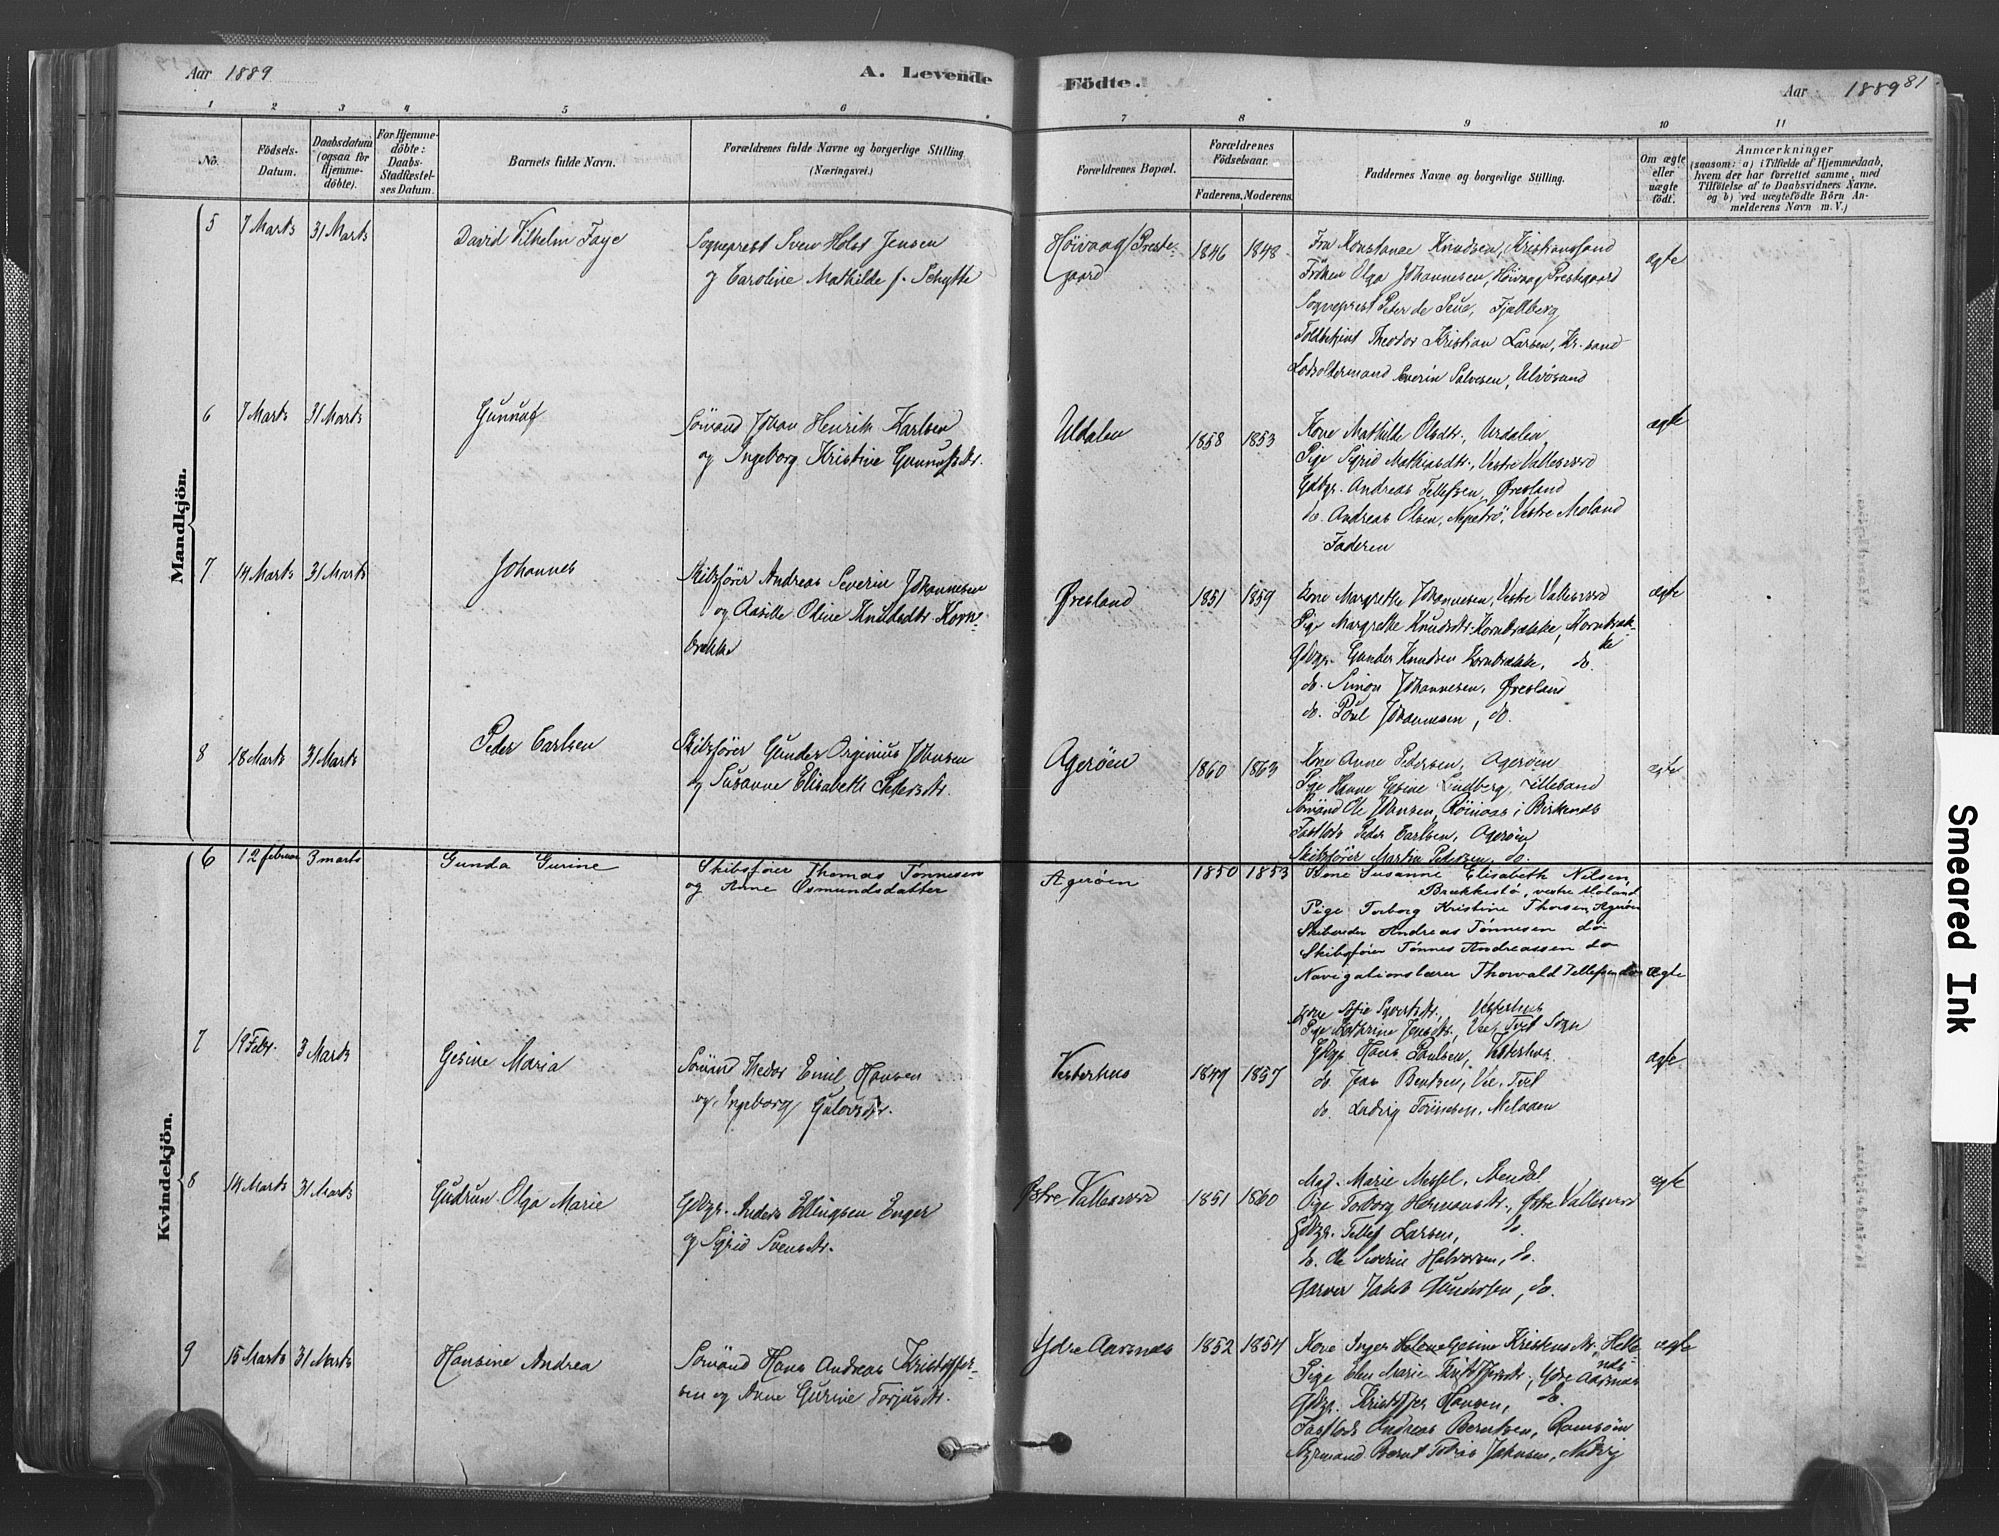 Aar 1889
A. Levende
Födte.
Aar 1889
81
1 2 3 4 5 6
7 8 9 10 11
No.
Födsels-
Datum.
Daabsdatum
(ogsaa for
Hjemme-
döbte).
For Hjemme-
döbte:
Daabs-
Stadfæstel-
ses Datum.
Barnets fulde Navn.
Forældrenes fulde Navne og borgerlige Stilling
(Næringsvei.)
Forældrenes Bopæl.
Forældrenes
Födselsaar.
Faderens. Moderens.
Faddernes Navne og borgerlige Stilling.
Om ægte
eller
uægte
födt.
Anmærkninger
(saasom: a) i Tilfælde af Hjemmedaab,
hvem der har forrettet samme, med
Tilföielse af to Daabsvidners Navne.
og b) ved uægtefödte Börn An-
melderens Navn m. V.)
Mandkjön.
5 7 Marts 31 Marts David Vilhelm Faye
Sogneprest Sven Holst Jensen
og Caroline Mathilde f. Schytte
Höivaag Preste-
gaard
1846 1848
Fru Konstance Knudsen, Kristianssand
Fröken Olga Johannesen, Höivaag Prestegaard
Sogneprest Peter de Seue, Fjellberg
Toldbetjent Theodor Kristian Larsen, Kr.sand
Lodsoldermand Severin Salvesen, Ulvösund
ægte
6 7 Marts 31 Marts Gunnuf
Sömand Johan Henrik Karlsen
og Ingeborg Kristine Gunnufsdtr.
Urdalen
1858 1853
Kone Mathilde Olsdtr., Urdalen
Pige Sigrid Mathiasdtr., Vestre Vallesværd
Gdbgr. Andreas Tellefsen, Øresland
do. Andreas Olsen, Nepetrö, Vestre Moland
Faderen
ægte
7 14 Marts 31 Marts Johannes
Skibsförer Andreas Severin Johannesen
og Aasille Oline Knudsdtr. Korn-
brække
Øresland
1851 1859
Kone Margrethe Johannesen, Vestre Vallesværd
Pige Margrethe Knudsdtr. Kornbrække, Kornbræk-
ke
Gdbgr. Gunder Knudsen Kornbrække, do.
do. Simon Johannesen, Øresland
do. Poul Johannesen, do.
ægte
8 18 Marts 31 Marts Peder Carlsen
Skibsförer Gunder Orginius Johnsen
og Susanne Elisabeth Pedersdtr.
Ageröen
1860 1863
Kone Anne Pedersen, Ageröen
Pige Hanne Gesine Lindberg, Lillesand
Sömand Ole Johnsen, i Birkenæs
Fastlods Peder Carlsen, Ageröen
Skibsförer Martin Pedersen, do.
ægte
Kvindekjön.
6 12 februar 3 marts Gunda Gurine
Skibsförer Thomas Tönnesen
og Anne Osmundsdatter
Ageröen
1850 1853
Kone Susanne Elisabeth Nilsen,
Brækkestö, vestre Moland
Pige Torborg Kristine Thorsen, Ageröen
Skibsreder Andreas Tönnesen do
Skibsförer Tönnes Andreassen do
Navigationslærer Thorvald Tellefsen do
ægte
7 19 Febr. 3 Marts Gesine Maria
Sömand Thedor Emil Hansen
og Ingeborg Gulovsdtr.
Vesterhus
1847 1857
Kone Sofie Syvertsdtr., Vesterhus
Pige Kathrine Jensdtr., Vee, Tveit Sogn
Gdbgr. Hans Poulsen, Vesterhus
do. Jens Bentsen, Vee, Tveit
do. Ludvig Tönnesen, Meloden
ægte
8 14 Marts 31 Marts Gudrun Olga Marie
Gdbgr. Anders Ellingsen Enger
og Sigrid Svensdtr.
Østre Vallesværd
1851 1860
Mad. Marie Messel, Arendal
Pige Torborg Hermansdtr., Østre Vallesværd
Gdbgr. Tellef Larsen, do.
do. Ole Severin Halvorsen, do.
Garver Jakob Gundersen, do.
ægte
9 15 Marts 31 Marts Hansine Andrea
Sömand Hans Andreas Kristoffer-
sen og Anne Gurine Torjusdtr.
Ydre Aarsnæs
1852 1854
Kone Inger Helene Gesine Kristensdtr. Helle
Pige Elen Marie Kristoffersdtr., Ydre Aarsnæs
Gdbgr. Kristoffer Hansen, do.
Fastlods Andreas Berntsen, Ramsöen
Styrmand Bernt Tobias Jakobsen,
ægte
Smeared Ink